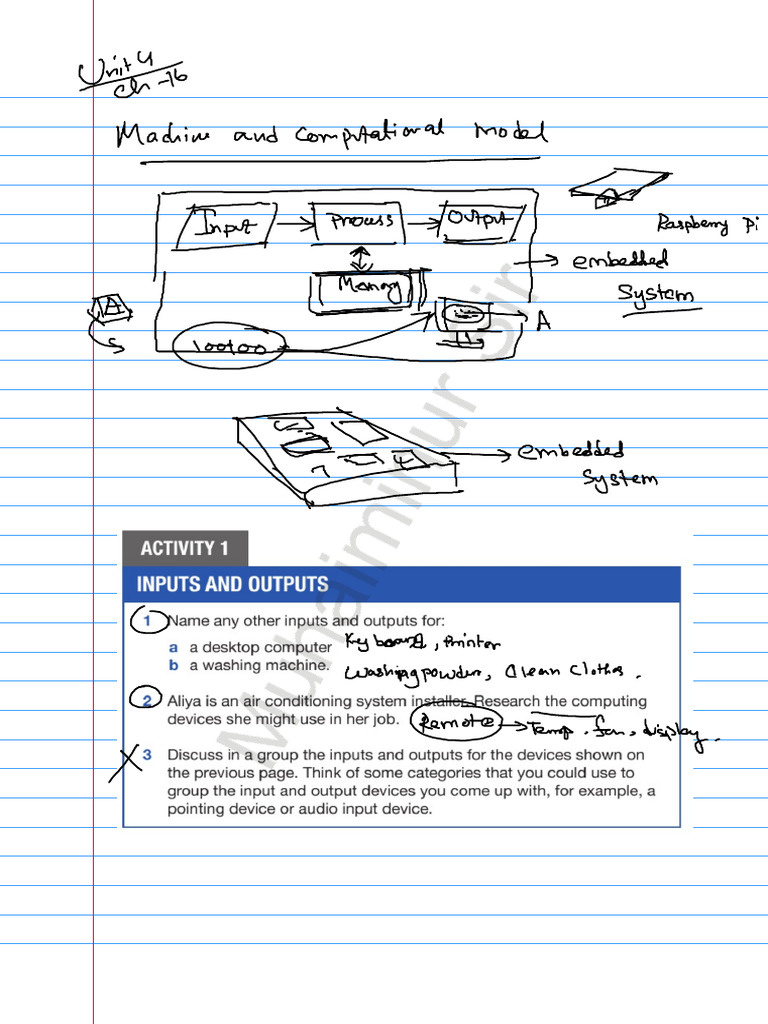 Unit 4
Ch-16
Machine and Computational Model
Input
Process
Output
Raspberry Pi
embedded
System
Memory
A
A
100100
embedded
System
ACTIVITY 1
INPUTS AND OUTPUTS
1 Name any other inputs and outputs for:
a a desktop computer Keyboard, Printer
b a washing machine. Washing powder, Clean Clothes.
2 Aliya is an air conditioning system installer. Research the computing
devices she might use in her job. Remote → Temp. fan, display.
3 Discuss in a group the inputs and outputs for the devices shown on
the previous page. Think of some categories that you could use to
group the input and output devices you come up with, for example, a
pointing device or audio input device.
Muhaiminur Sir